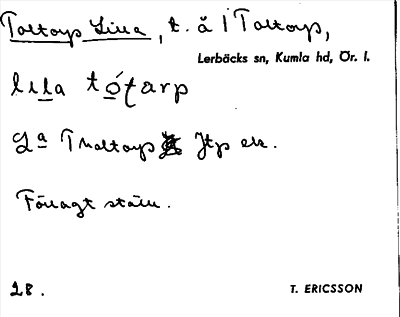 Toltorp Lilla, t. å i Toltorp,
Lerbäcks sn, Kumla hd, Ör. l.
lila tóṭarp
Lª Tholtorp Jtp ek.
Förlagt ställe.
28.
T. ERICSSON